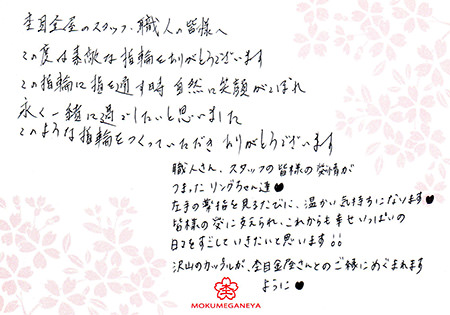 杢目金屋のスタッフ・職人の皆様へ
この度は素敵な指輪をありがとうございます
この指輪に指を通す時 自然に笑顔がこぼれ
永く一緒に過ごしたいと思いました
このような指輪をつくっていただき ありがとうございます
職人さん、スタッフの皆様の愛情が
つまったリングちゃん達♥
左手の薬指を見るたびに、温かい気持ちになります♥
皆様の愛に支えられ、これからも幸せいっぱいの
日々をすごしていきたいと思います!!
沢山のカップルが、杢目金屋さんとのご縁にめぐまれます
ように♥
MOKUMEGANEYA